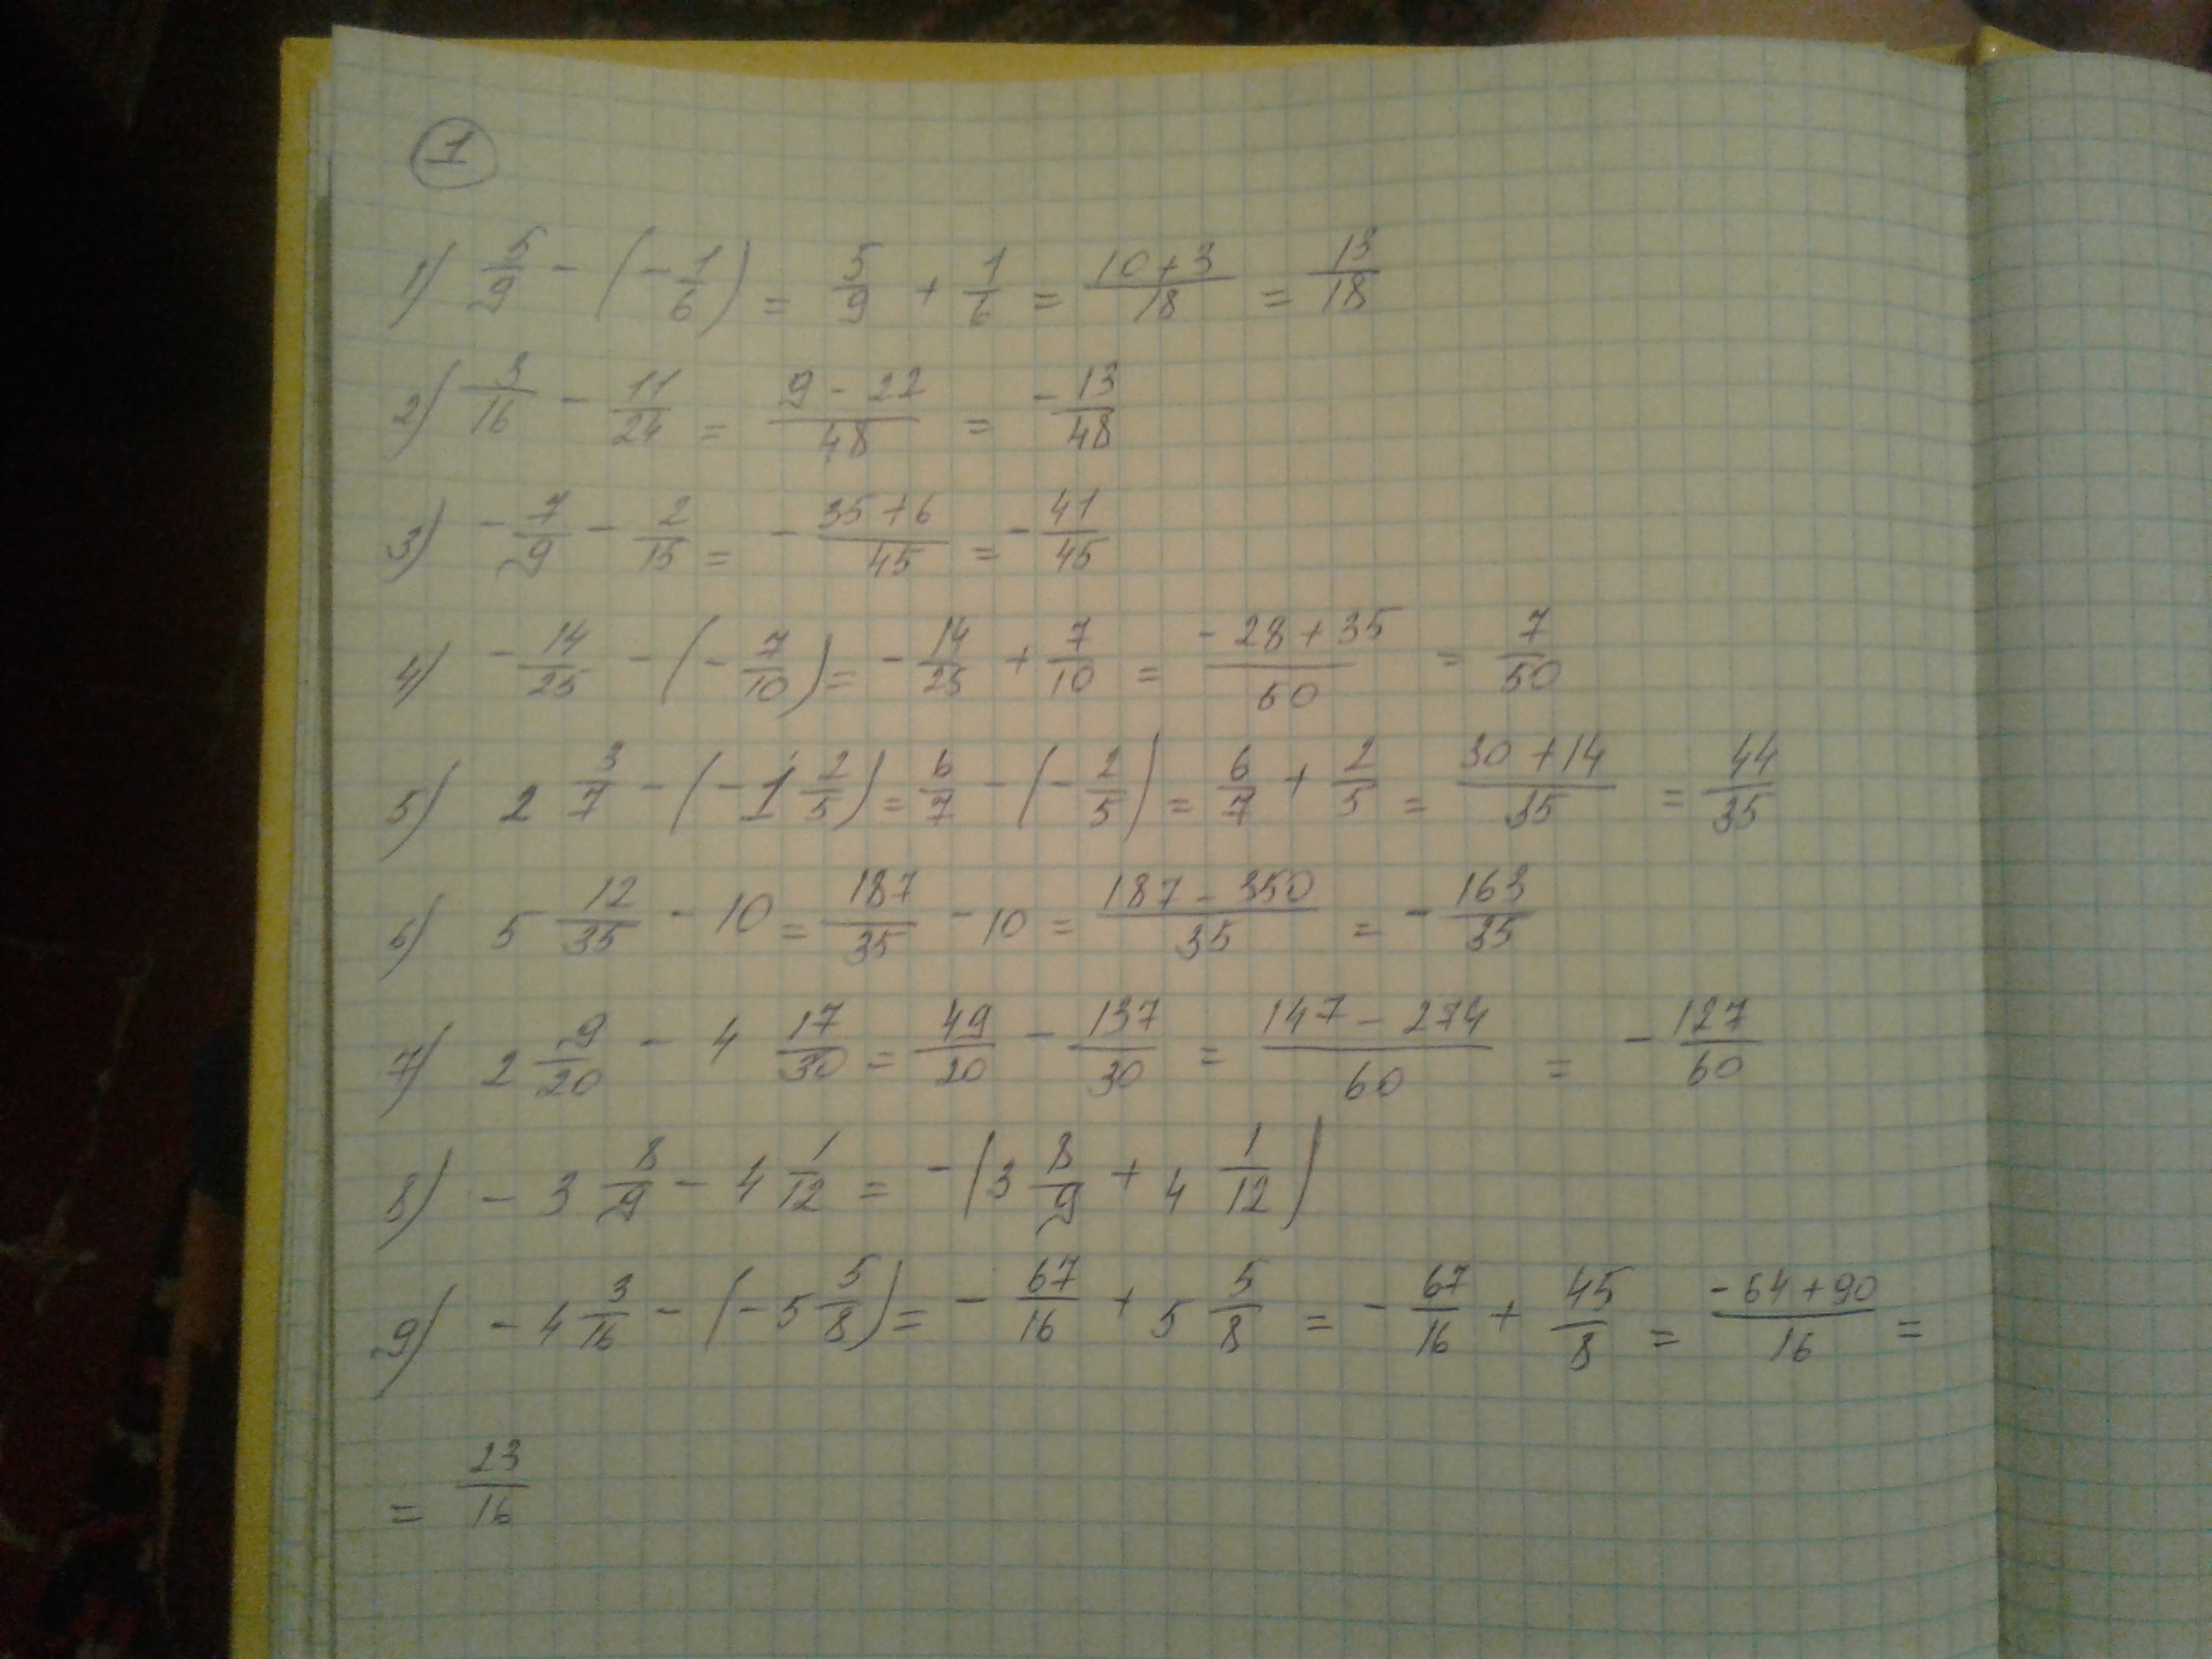 1
1) 5/9 - (-1/6) = 5/9 + 1/6 = (10+3)/18 = 13/18
2) 3/16 - 11/24 = (9-22)/48 = -13/48
3) -7/9 - 2/15 = -(35+6)/45 = -41/45
4) -14/25 - (-7/10) = -14/25 + 7/10 = (-28+35)/50 = 7/50
5) 2 3/7 - (-1 2/5) = 6/7 - (-2/5) = 6/7 + 2/5 = (30+14)/35 = 44/35
6) 5 12/35 - 10 = 187/35 - 10 = (187-350)/35 = -163/35
7) 2 9/20 - 4 17/30 = 49/20 - 137/30 = (147-274)/60 = -127/60
8) -3 8/9 - 4 1/12 = -(3 8/9 + 4 1/12)
9) -4 3/16 - (-5 5/8) = -67/16 + 5 5/8 = -67/16 + 45/8 = (-64+90)/16 =
= 23/16